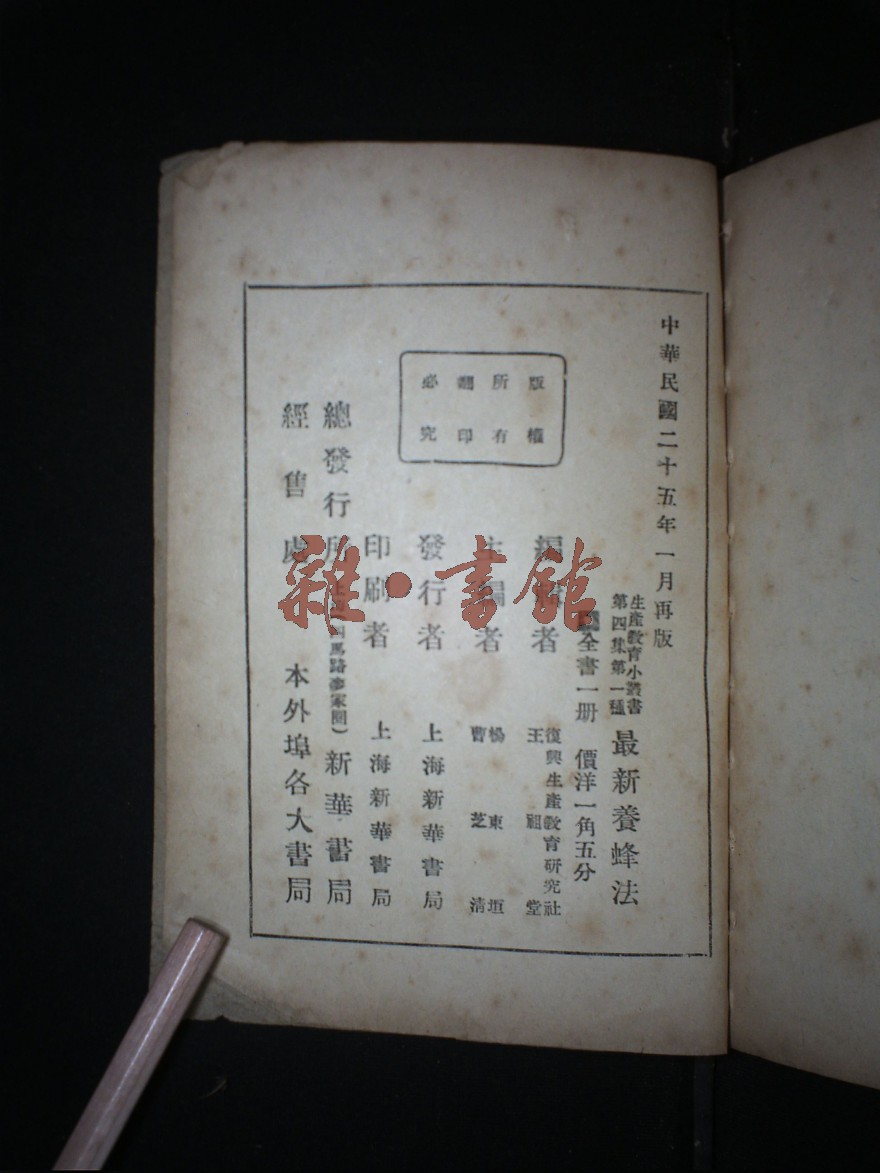 中華民國二十五年一月再版
生產教育小叢書
第四集第一種
最新養蜂法
全書一册 價洋一角五分
版權
所有
翻印
必究
編輯者
復興生產教育研究社
王祖堂
主編者
楊東垣
曹芝清
發行者 上海新華書局
印刷者 上海新華書局
總發行所 四馬路 新華書局
經售處 本外埠各大書局
雜·書館